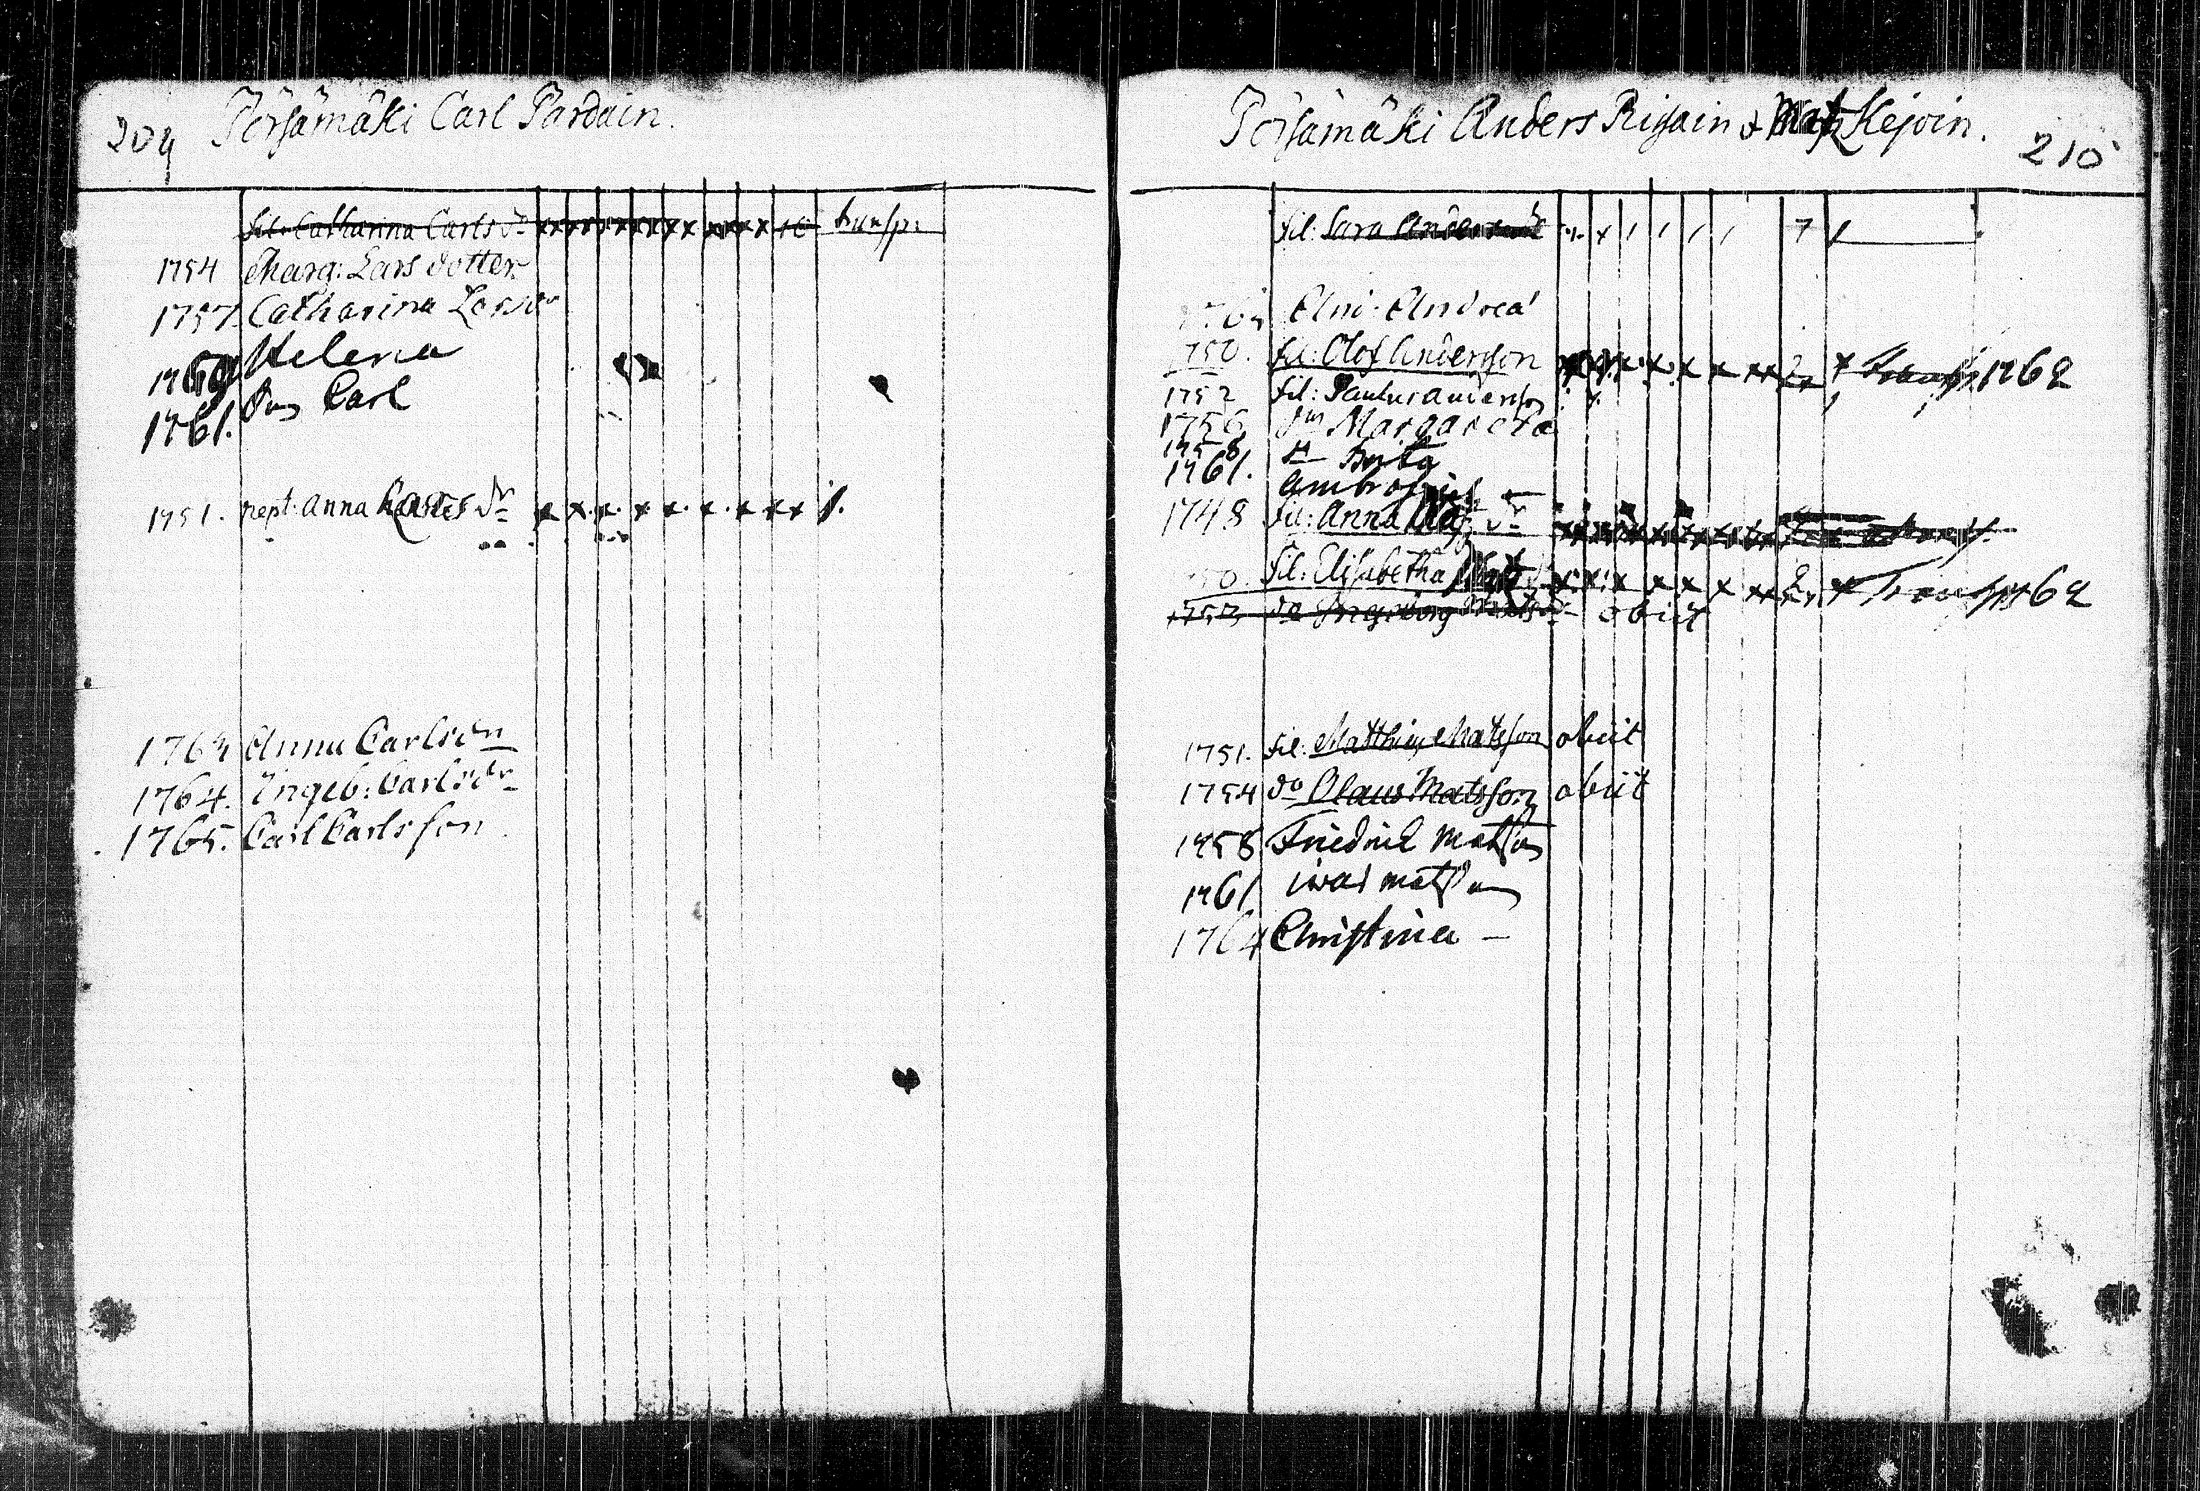 209 Pörsämäki Carl Pardain.
fil: Catharina Carls dr xx xx xx xx xx x xx xx transp:
1754 Marg: Lars dotter
1757. Catharina Larsdr
1759 Helena
1761. Carl
1751. nept: Anna Lars dr x x x x x x x x x
1763 Anna Carlsdr
1764. Ingeb: Carlsdr
1765. Carl Carlsson
Pörsämäki Anders Rissain & Matz Kejoin. 210
fil: Sara Andersdr 7 /
And: Andreæ
1750. fil: Olof Andersson x x x x x x transp 1762
1752 fil: Paulus Andersson
1756 Margareta
1758 Brita
1761. Ambrosius
1748 fil: Anna Matz dr
fil: Elisabetha Matz x x x x x x x transp 1762
1753 do Ingeborg Matsdr obiit
1751. fil: Matthias Matsson obiit
1754 do Olaus Matsson obiit
1758 Friedrich Matsson
1761 iwar matsson
1764 Christina —